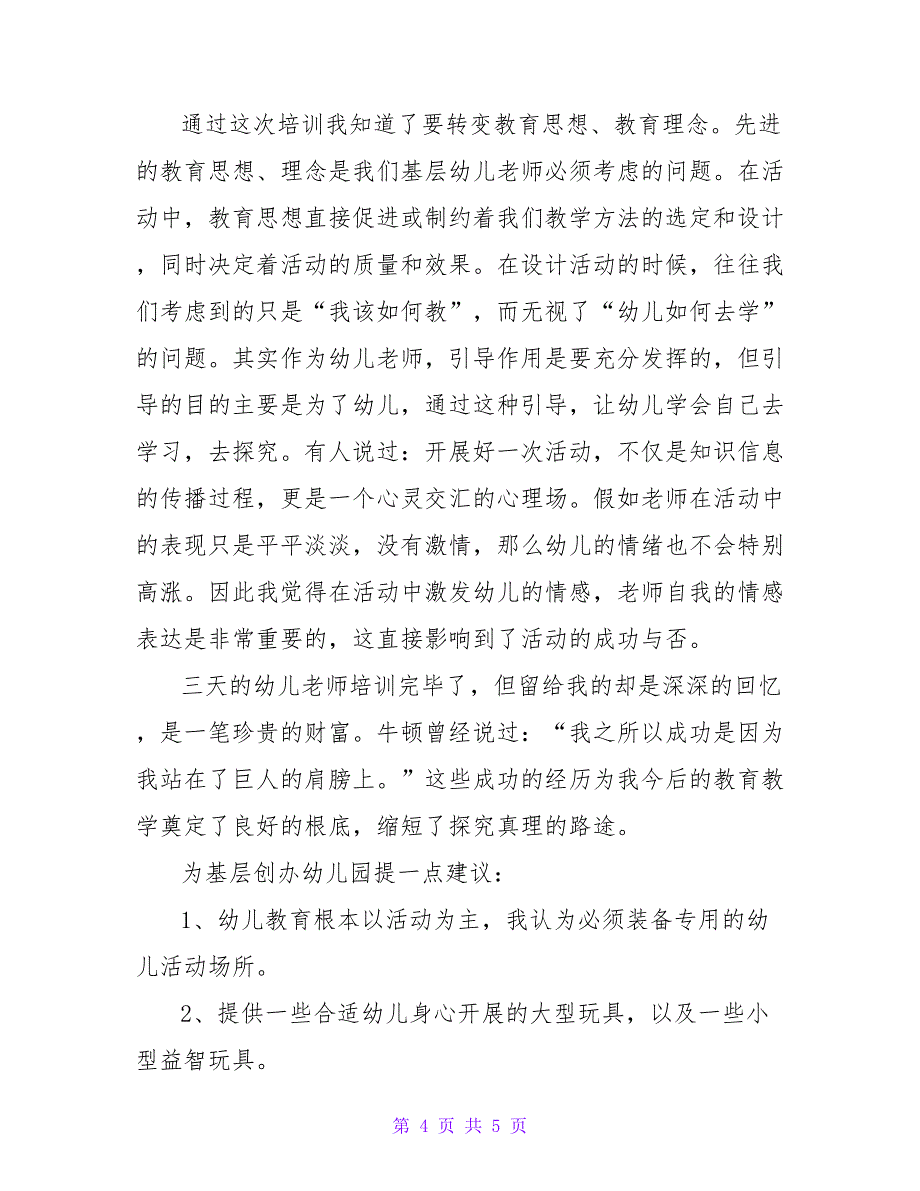 通过这次培训我知道了要转变教育思想、教育理念。先进
的教育思想、理念是我们基层幼儿老师必须考虑的问题。在活
动中，教育思想直接促进或制约着我们教学方法的选定和设计
，同时决定着活动的质量和效果。在设计活动的时候，往往我
们考虑到的只是“我该如何教”，而无视了“幼儿如何去学”
的问题。其实作为幼儿老师，引导作用是要充分发挥的，但引
导的目的主要是为了幼儿，通过这种引导，让幼儿学会自己去
学习，去探究。有人说过：开展好一次活动，不仅是知识信息
的传播过程，更是一个心灵交汇的心理场。假如老师在活动中
的表现只是平平淡淡，没有激情，那么幼儿的情绪也不会特别
高涨。因此我觉得在活动中激发幼儿的情感，老师自我的情感
表达是非常重要的，这直接影响到了活动的成功与否。
三天的幼儿老师培训完毕了，但留给我的却是深深的回忆
，是一笔珍贵的财富。牛顿曾经说过：“我之所以成功是因为
我站在了巨人的肩膀上。”这些成功的经历为我今后的教育教
学奠定了良好的根底，缩短了探究真理的路途。
为基层创办幼儿园提一点建议：
1、幼儿教育根本以活动为主，我认为必须装备专用的幼
儿活动场所。
2、提供一些合适幼儿身心开展的大型玩具，以及一些小
型益智玩具。
第 4 页 共 5 页